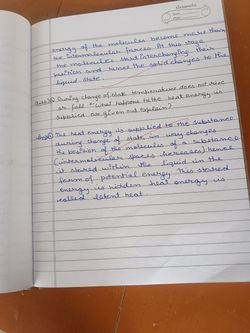 energy of the molecules become more than
the intermolecular forces. At this stage
the molecules start interchanging their
position and hence the solid changes to the
liquid state.
During change of state temperature does not rise
or fall. What happens to the heat energy is
supplied or given out explain?
The heat energy is supplied to the substance
during change of state in way changes
the position of the molecules of a substance
(intermolecular spaces increases) hence
it stored within the liquid in the
form of potential energy. This stored
energy is hidden heat energy is
called latent heat.